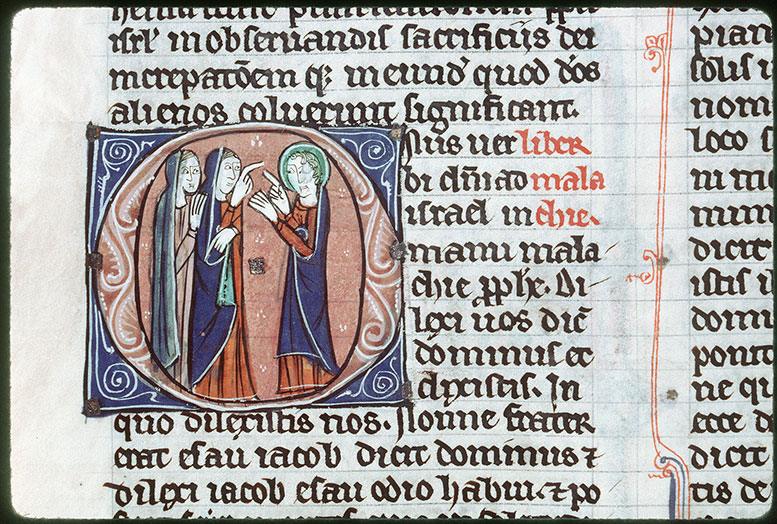 isrl̄ in obseruandis sacrificijs dei
increpatōem q; in eund' quod dōs
alienos coluerunt significant.
Onus uer liber
bi dn̄i ad mala
israel in chie.
manu mala
chie ꝓph̄e. Di
lexi uos dic̄
dominus et
dixistis. In
quo dilexistis nos. Nonne frater
erat esau iacob dicit dominus ⁊
dilexi iacob esau odio habui. ⁊ po
pian
solis i
nom
loco s
mun
dicit
istis i
domi
ponit
ne qu
ecce d
dicit
tis de